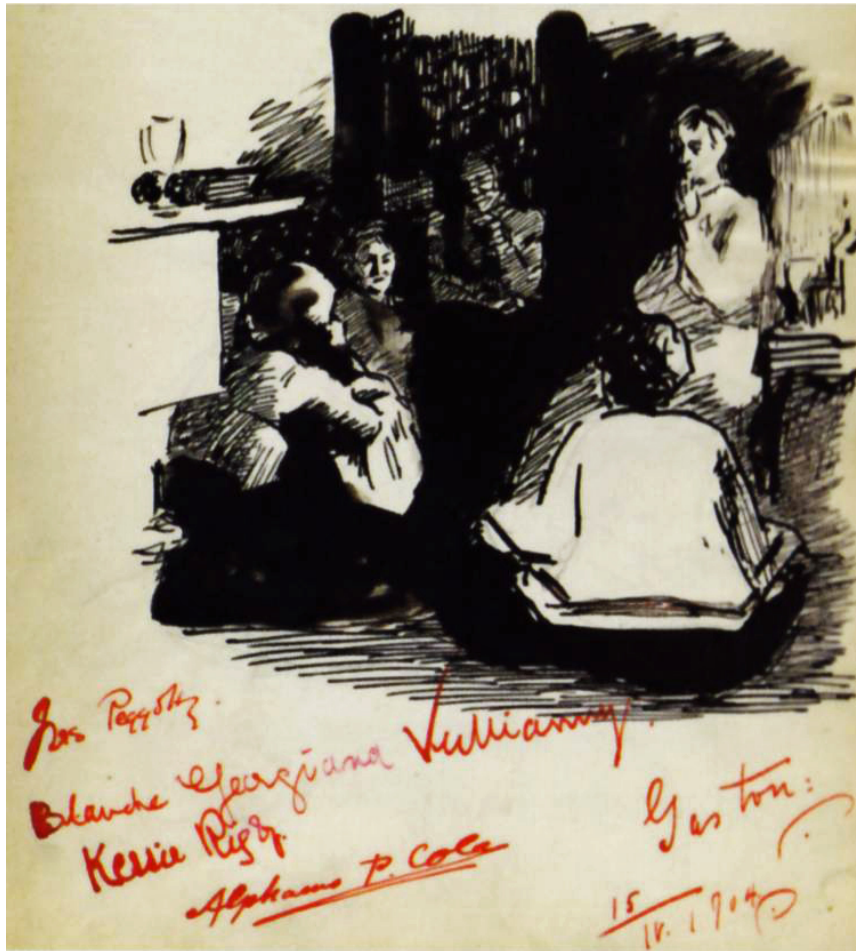 Peggotty.
Blanche Georgiana Vulliamy.
Kessie Rigby.
Alphaeus P. Cole
Gaston:
15
IV. 1904